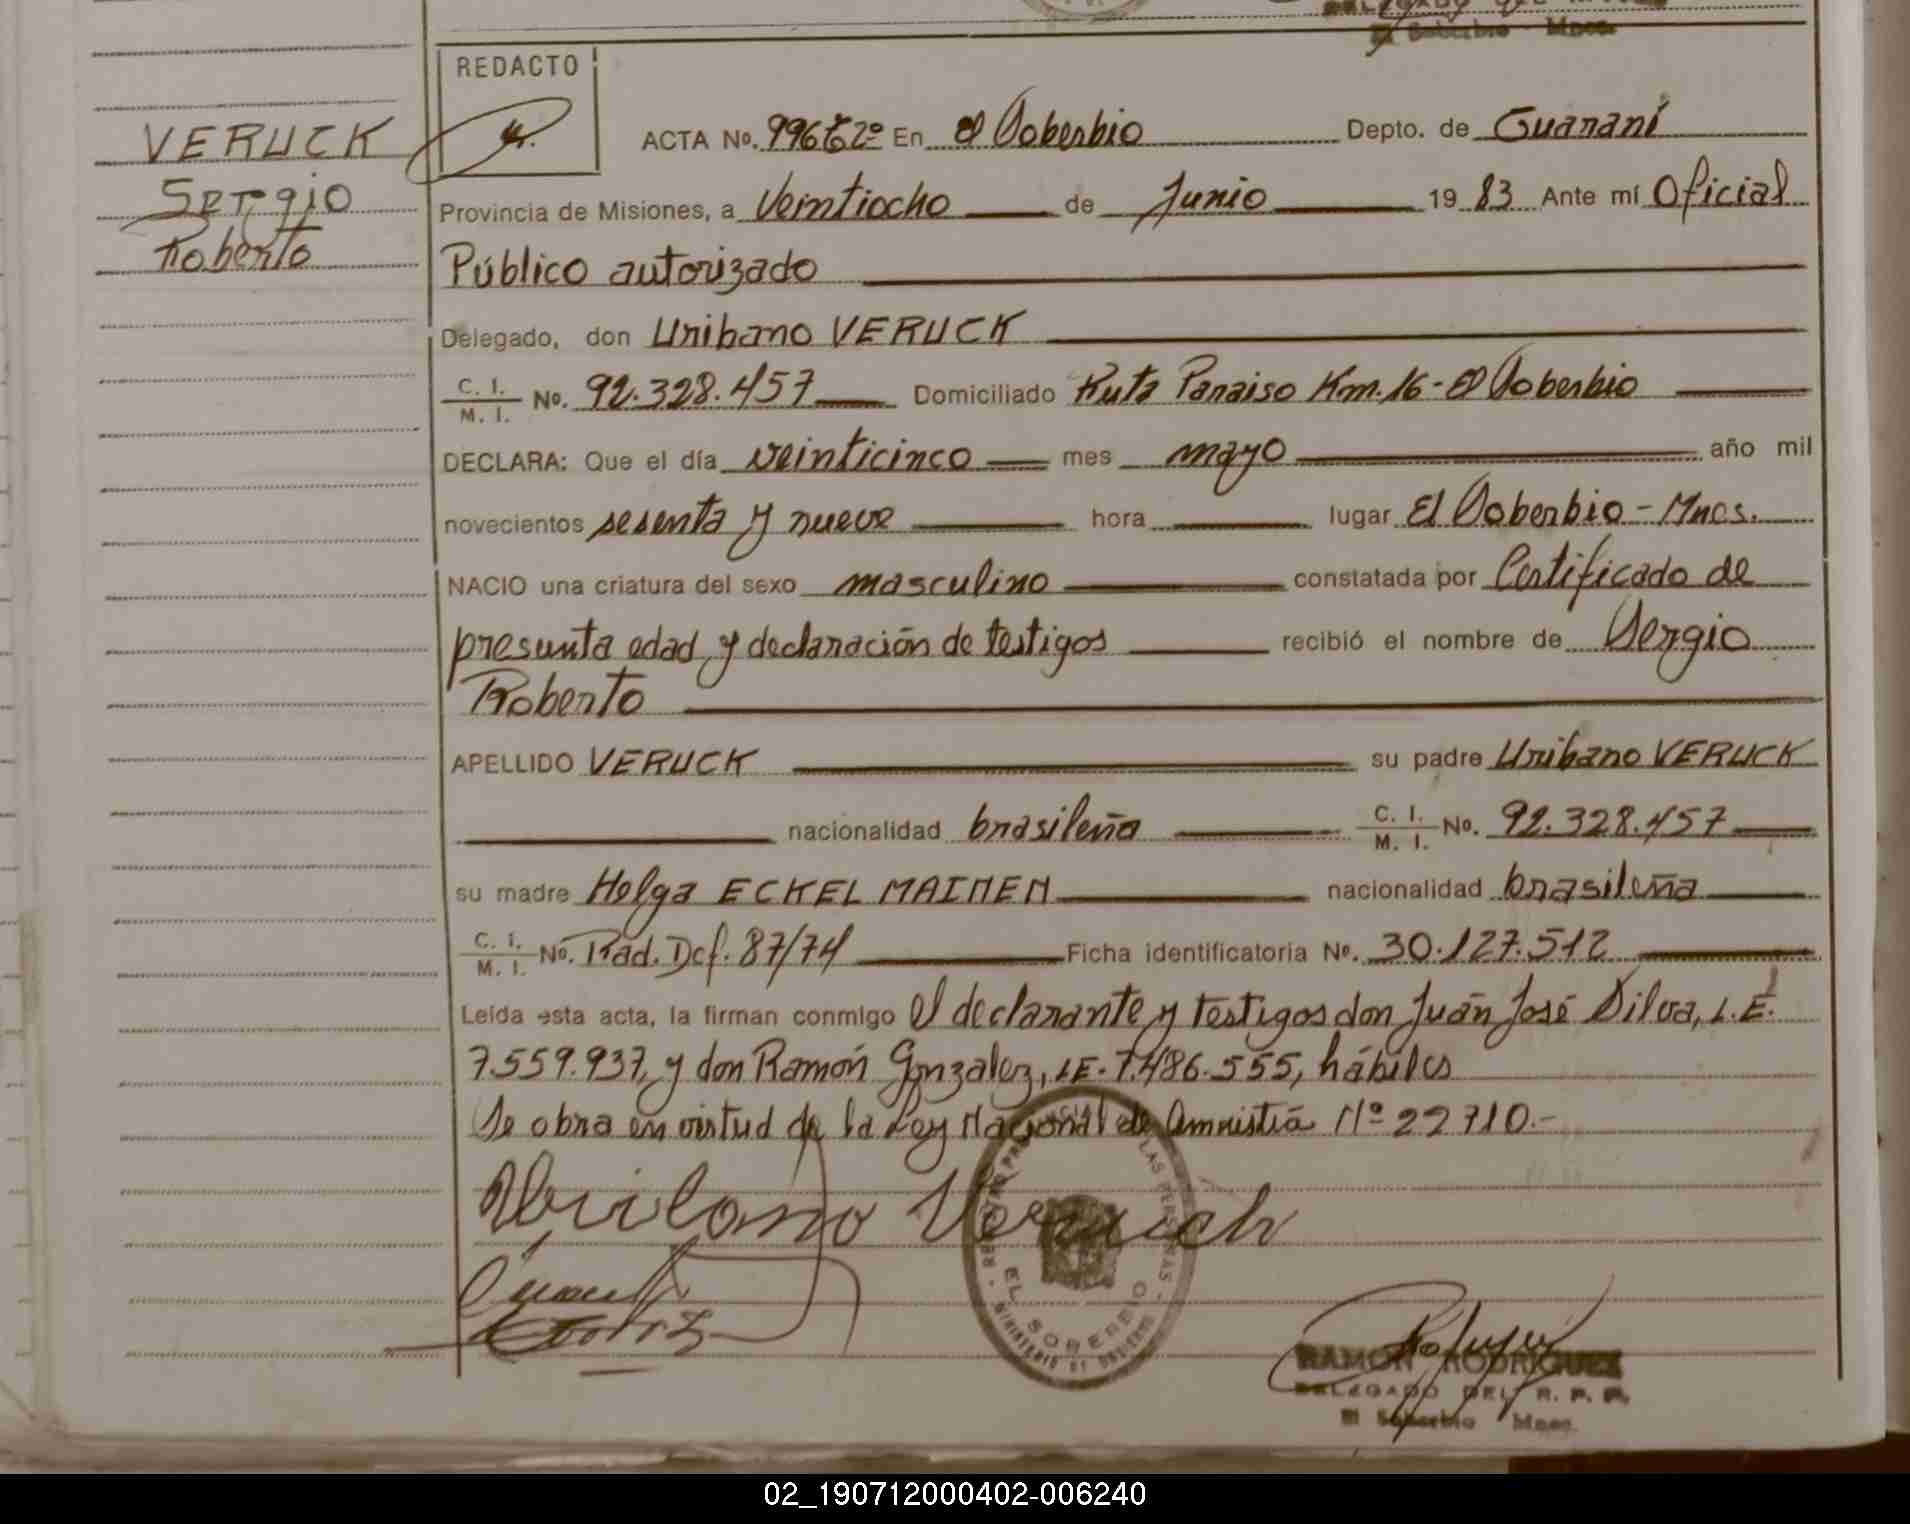 REDACTO
VERUCK
Sergio
Roberto
ACTA No. En El Soberbio Depto. de Guaraní
Provincia de Misiones, a Veintiocho de Junio 19 83 Ante mí Oficial
Público autorizado
Delegado, don Uribano VERUCK
C. I. / M. I. No. 92.328.457 Domiciliado Ruta Paraiso Km. 16 - El Soberbio
DECLARA: Que el día veinticinco mes mayo año mil
novecientos sesenta y nueve hora lugar El Soberbio - Mnes.
NACIO una criatura del sexo masculino constatada por Certificado de
presunta edad y declaración de testigos recibió el nombre de Sergio
Roberto
APELLIDO VERUCK su padre Uribano VERUCK
nacionalidad brasileña C. I. / M. I. No. 92.328.457
su madre Helga ECKEL MAINEN nacionalidad brasileña
C. I. / M. I. No. Rad. Def. 87/74 Ficha identificatoria No. 30.127.512
Leída esta acta, la firman conmigo el declarante y testigos don Juán José Silva, L.E.
7.559.937, y don Ramón Gonzalez, LE. 7.486.555, hábiles
Se obra en virtud de la Ley Nacional de Amnistía Nº 22710.-
Uribano Veruck
EL SOBERBIO
RAMON RODRIGUEZ
DELEGADO DEL R. P. P.
El Soberbio Mnes.
02_190712000402-006240